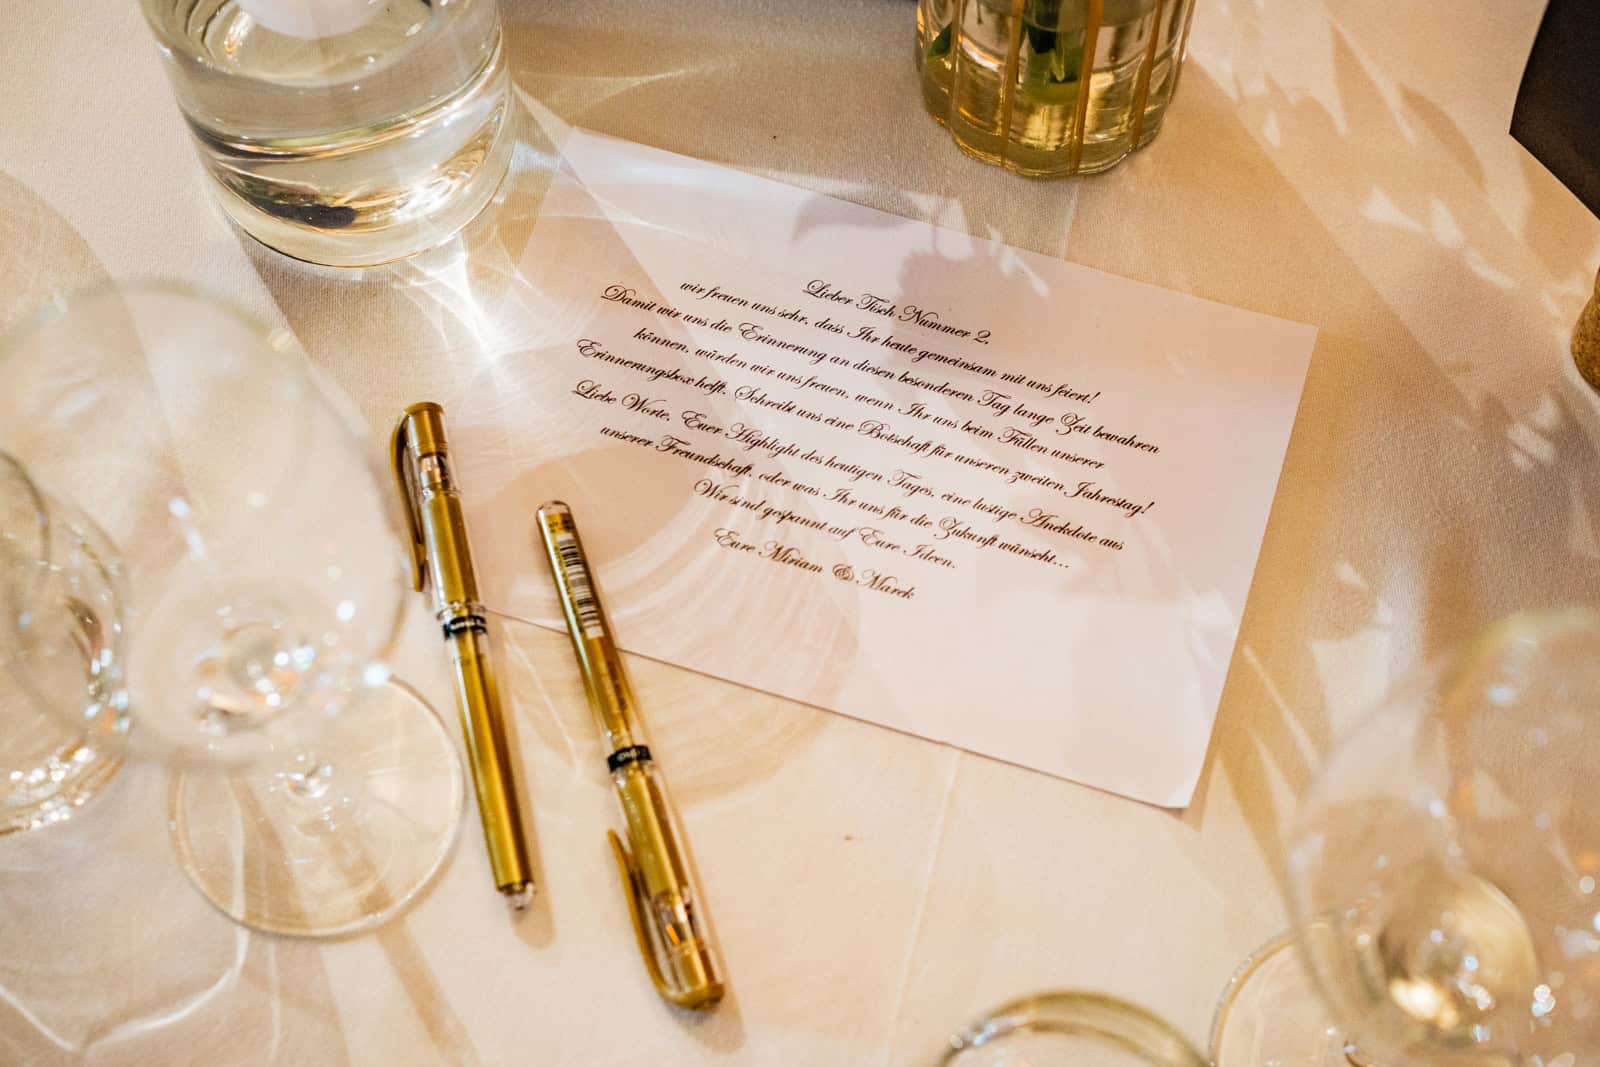 Lieber Tisch Nummer 2,
wir freuen uns sehr, dass Ihr heute gemeinsam mit uns feiert!
Damit wir uns die Erinnerung an diesen besonderen Tag lange Zeit bewahren
können, würden wir uns freuen, wenn Ihr uns beim Füllen unserer
Erinnerungsbox helft. Schreibt uns eine Botschaft für unseren zweiten Jahrestag!
Liebe Worte, Euer Highlight des heutigen Tages, eine lustige Anekdote aus
unserer Freundschaft, oder was Ihr uns für die Zukunft wünscht...
Wir sind gespannt auf Eure Ideen.
Eure Miriam & Marek